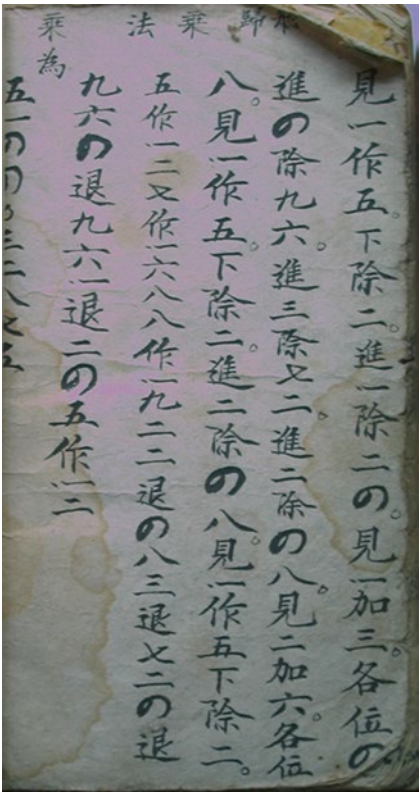 歸乘法
乘為
見一作五。下除二。進一除二四。見一加三。各位四
進四除九六。進三除七二。進二除四八。見二加六。各位
八。見一作五。下除二。進二除四八見一作五下除二。
五作一二七作一六八八作一九二二退四八三退七二四退
九六四退九六一退二四五作一二
五一四
三二八七五